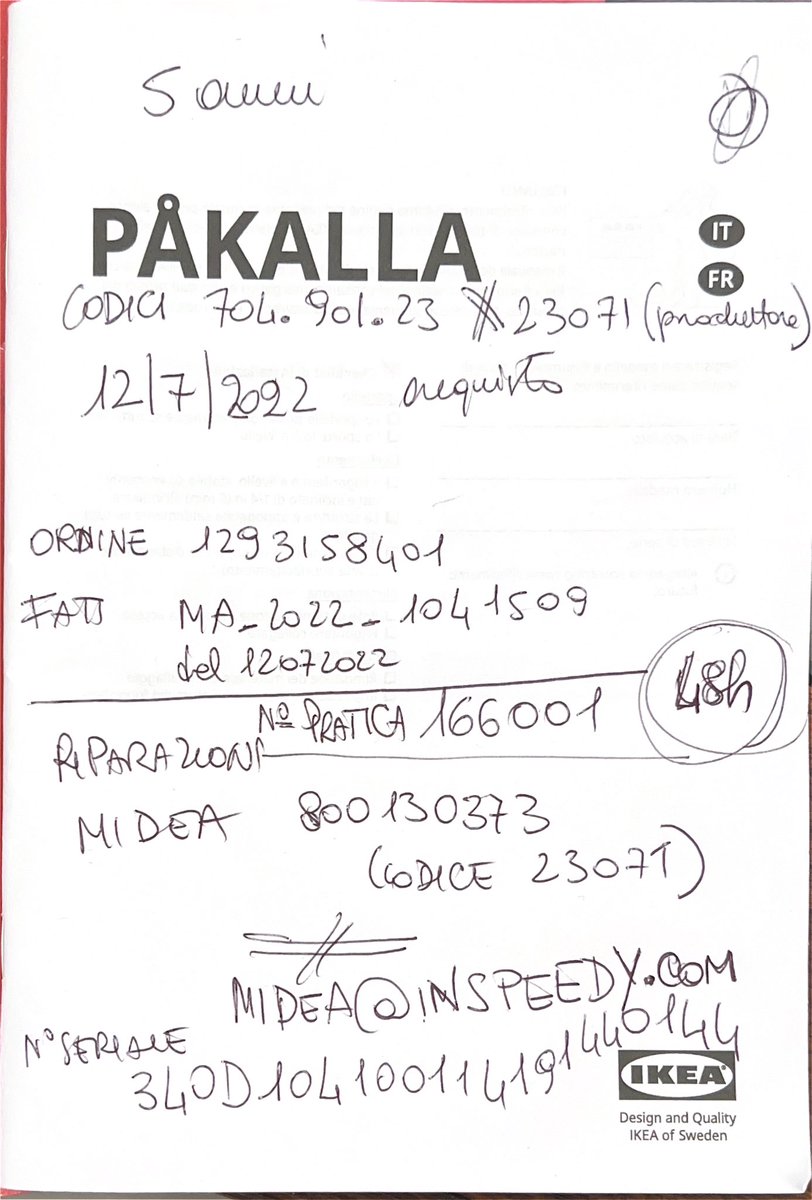 5 anni
PÅKALLA
IT
FR
CODICI 704.901.23 23071 (produttore)
12/7/2022 acquisto
ORDINE 1293158401
FATT MA_2022_1041509
del 12072022
48h
Nº PRATICA 166001
RIPARAZIONI
MIDEA 800130373
(CODICE 23071)
MIDEA@INSPEEDY.COM
Nº SERIALE
340D104100114191440144
IKEA
Design and Quality
IKEA of Sweden